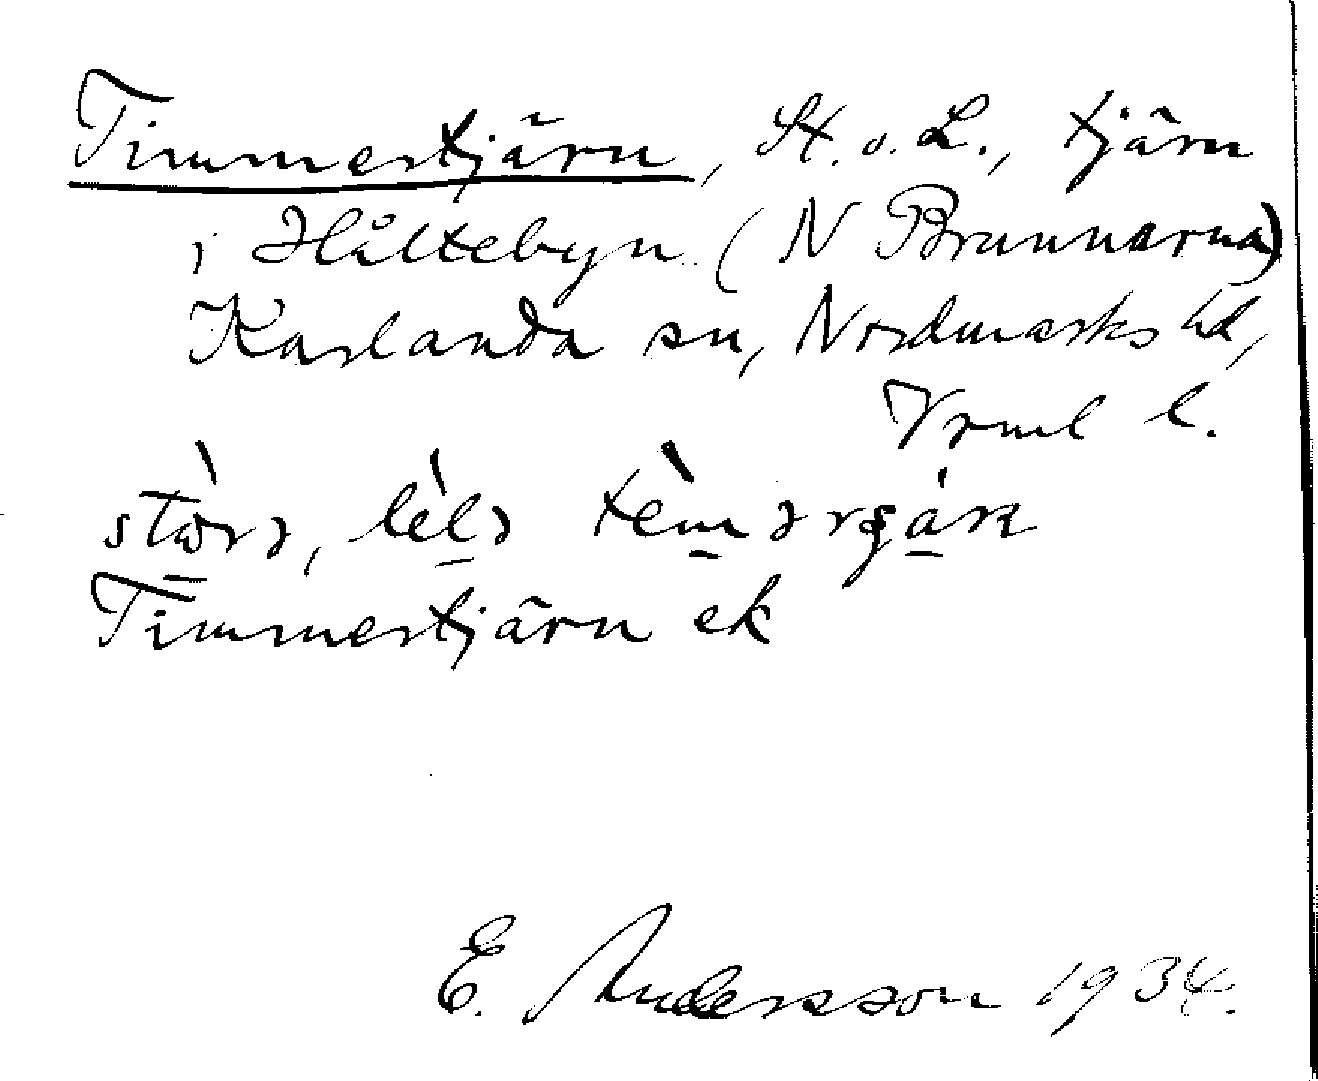 Timmertjärn, St. o. L., tjärn
i Håltebyn (N Brunnarna)
Karlanda sn, Nordmarks hd,
Vrml l.
Timmertjärn ek
E. Andersson 1934.